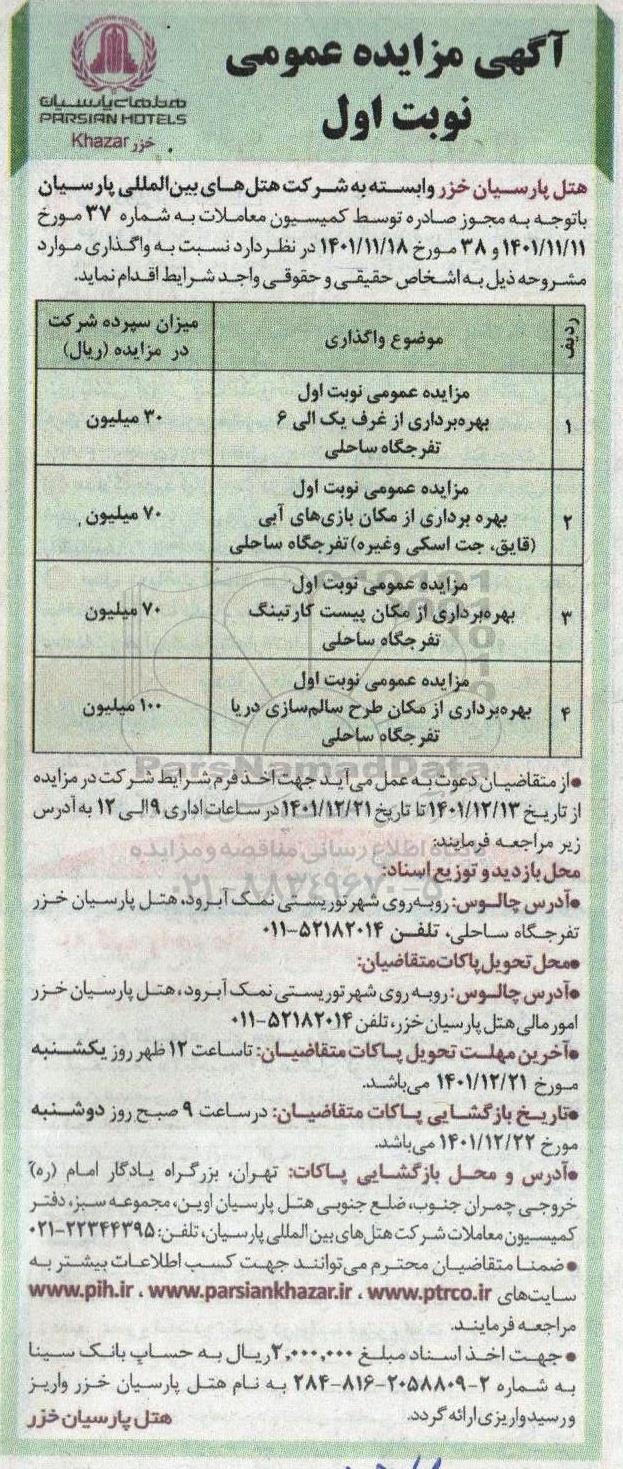 آگهی مزایده عمومی
نوبت اول
هتلهای پارسیان
PARSIAN HOTELS
خزر Khazar
هتل پارسیان خزر وابسته به شرکت هتل‌های بین‌المللی پارسیان
باتوجه به مجوز صادره توسط کمیسیون معاملات به شماره ۳۷ مورخ
۱۴۰۱/۱۱/۱۱ و ۳۸ مورخ ۱۴۰۱/۱۱/۱۸ در نظر دارد نسبت به واگذاری موارد
مشروحه ذیل به اشخاص حقیقی و حقوقی واجد شرایط اقدام نماید.
ردیف
موضوع واگذاری
میزان سپرده شرکت
در مزایده (ریال)
۱
مزایده عمومی نوبت اول
بهره‌برداری از غرف یک الی ۶
تفرجگاه ساحلی
۳۰ میلیون
۲
مزایده عمومی نوبت اول
بهره برداری از مکان بازی‌های آبی
(قایق، جت اسکی وغیره) تفرجگاه ساحلی
۷۰ میلیون
۳
مزایده عمومی نوبت اول
بهره‌برداری از مکان پیست کارتینگ
تفرجگاه ساحلی
۷۰ میلیون
۴
مزایده عمومی نوبت اول
بهره‌برداری از مکان طرح سالم‌سازی دریا
تفرجگاه ساحلی
۱۰۰ میلیون
ParsNamadData
پایگاه اطلاع رسانی مناقصه و مزایده
۰۲۱-۸۸۳۴۹۶۷۰-۵
•از متقاضیان دعوت به عمل می‌آید جهت اخذ فرم شرایط شرکت در مزایده
از تاریخ ۱۴۰۱/۱۲/۱۳ تا تاریخ ۱۴۰۱/۱۲/۲۱ در ساعات اداری ۹ الی ۱۲ به آدرس
زیر مراجعه فرمایند:
محل بازدید و توزیع اسناد:
•آدرس چالوس: روبه‌روی شهر توریستی نمک آبرود، هتل پارسیان خزر
تفرجگاه ساحلی، تلفن ۵۲۱۸۲۰۱۴-۰۱۱
•محل تحویل پاکات متقاضیان:
•آدرس چالوس: روبه روی شهر توریستی نمک آبرود، هتل پارسیان خزر
امور مالی هتل پارسیان خزر، تلفن ۵۲۱۸۲۰۱۴-۰۱۱
•آخرین مهلت تحویل پاکات متقاضیان: تا ساعت ۱۲ ظهر روز یکشنبه
مورخ ۱۴۰۱/۱۲/۲۱ می‌باشد.
•تاریخ بازگشایی پاکات متقاضیان: در ساعت ۹ صبح روز دوشنبه
مورخ ۱۴۰۱/۱۲/۲۲ می‌باشد.
•آدرس و محل بازگشایی پاکات: تهران، بزرگراه یادگار امام (ره)
خروجی چمران جنوب، ضلع جنوبی هتل پارسیان اوین، مجموعه سبز، دفتر
کمیسیون معاملات شرکت هتل‌های بین المللی پارسیان، تلفن: ۲۲۳۴۴۳۹۵-۰۲۱
• ضمنا متقاضیان محترم می‌توانند جهت کسب اطلاعات بیشتر به
سایت‌های www.pih.ir ، www.parsiankhazar.ir ، www.ptrco.ir
مراجعه فرمایند.
• جهت اخذ اسناد مبلغ ۲,۰۰۰,۰۰۰ ریال به حساب بانک سینا
به شماره ۲-۲۰۵۸۸۰۹-۸۱۶-۲۸۴ به نام هتل پارسیان خزر واریز
و رسید واریزی ارائه گردد.
هتل پارسیان خزر